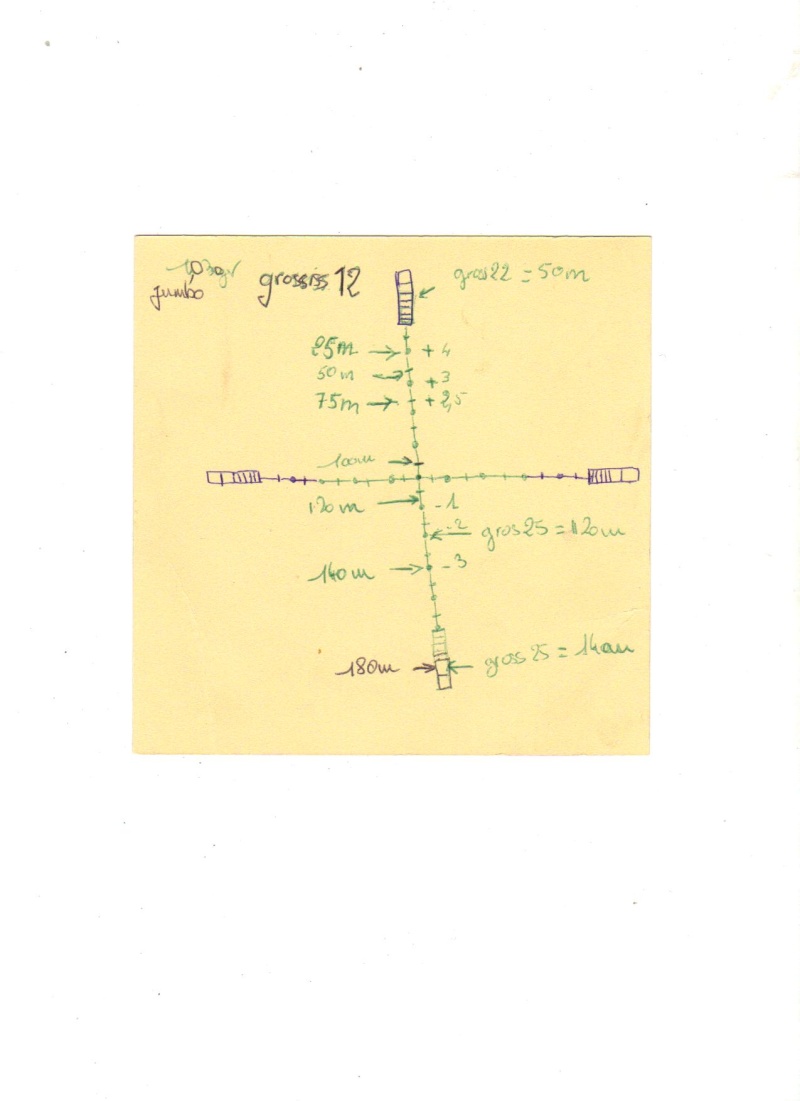 1,030gr
Jumbo
grossiss 12
gros 22 = 50m
25m + 4
50m + 3
75m + 2,5
100m
120m - 1
- 2 gros 25 = 120m
140m - 3
180m gross 25 = 140m